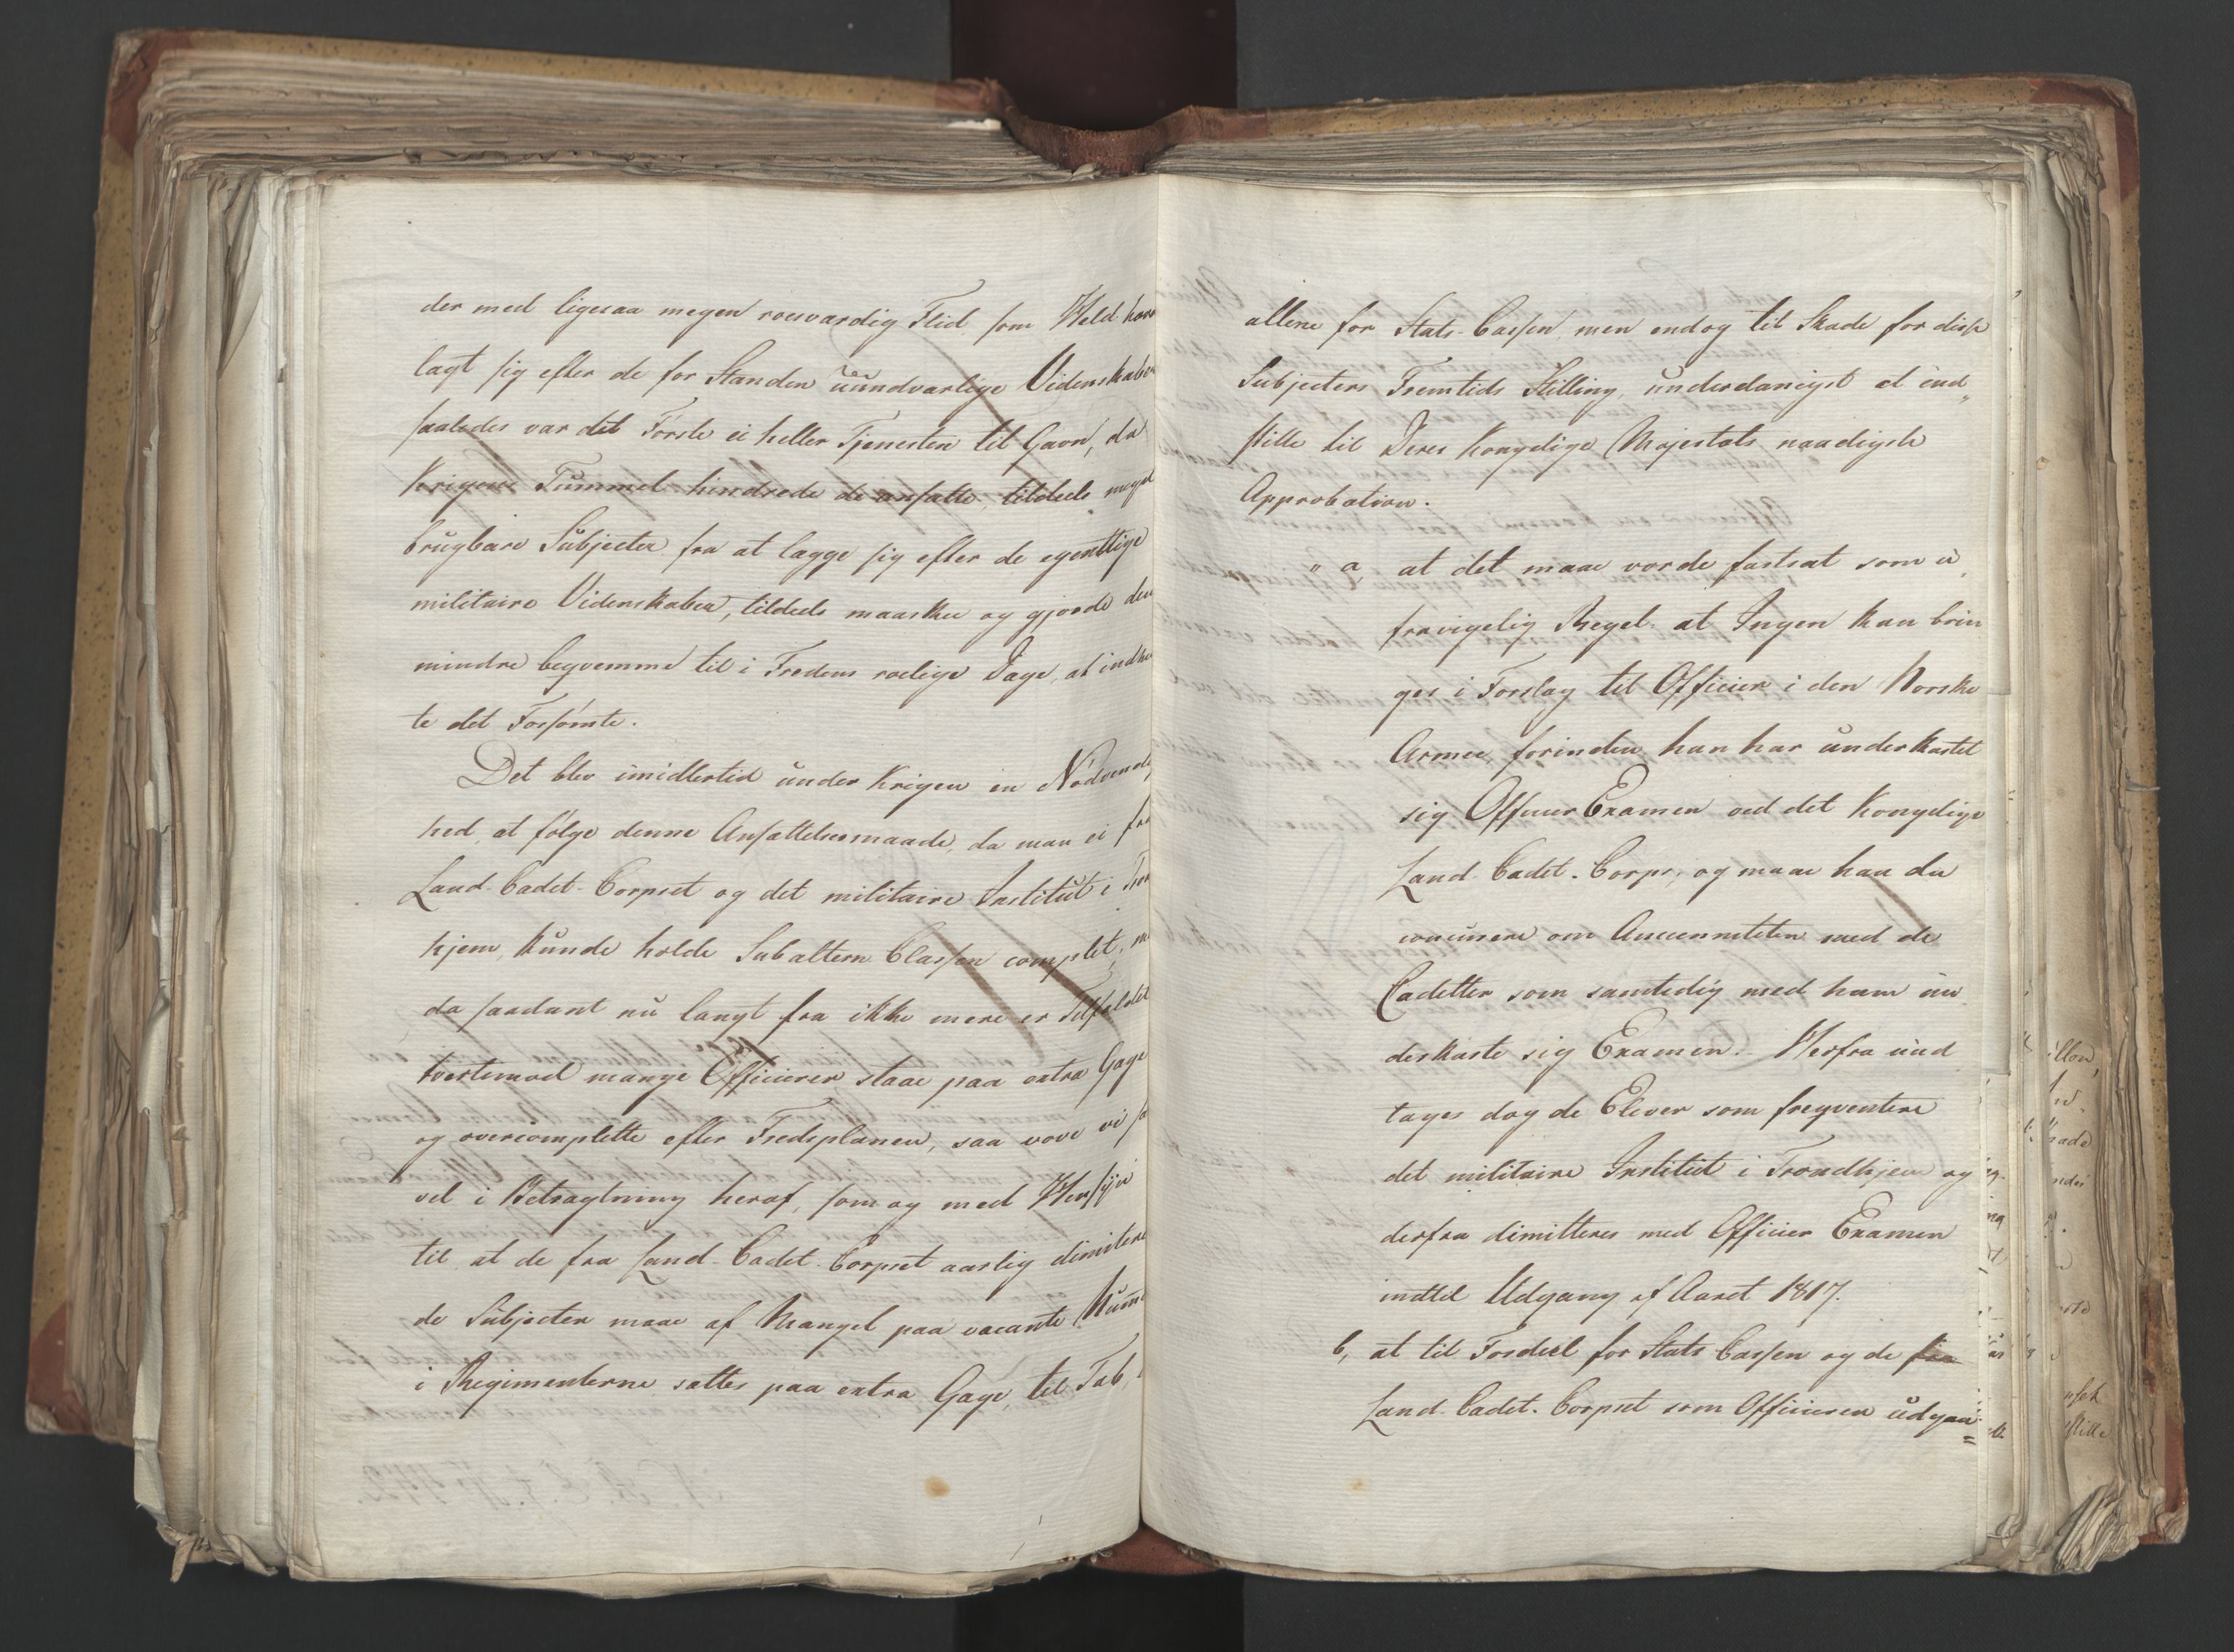 der med ligesaa megen roesværdig Flid som Held have
lagt sig efter de for Standen uundværlige Videnskaber
saaledes var det Første ei heller Tjenesten til Gavn, da
Krigens Tummel hindrede de ansatte, tildeels meget
brugbare Subjecter fra at lægge sig efter de egentlige
militaire Videnskaber, tildeels maaskee og gjorde dem
mindre beqvemme til i Fredens roelige Dage, at indhen
te det Forsømte.
Det blev imidlertid under Krigen en Nødvendig
hed, at følge denne Ansættelsesmaade, da man ei fra
Land-Cadet-Corpset og det militaire Institut i Tron
hjem, kunde holde Subaltern Classen complet,
da saadant nu langt fra ikke mere er Tilfældet
tvertimod mange Officierer staae paa extra Gage
og overcomplette efter Fredsplanen, saa vove vi saa
vel i Betragtning heraf, som og med Hensyn
til at de fra Land-Cadet-Corpset aarlig dimitere
de Subjecter maae af Mangel paa vacante Numre
i Regimenterne sættes paa extra Gage, til Tab,
allene for Stats-Cassen, men endog til Skade for disse
Subjecters Fremtids Stilling, underdanigst at ind„
stille til Deres Kongelige Majestæts naadigste
Approbation.
" a, at det maae vorde fastsat som u
fravigelig Regel at Ingen kan brin
ges i Forslag til Officier i den Norske
Armee, forinden han har underkastet
sig Officier Examen ved det Kongelige
Land-Cadet-Corps, og maae han da
concurere om Ancienniteten med de
Cadetter som samtidig med ham un
derkaste sig Examen. Herfra und
tages dog de Elever som freqventere
det militaire Institut i Trondhjem og
derfra dimitteres med Officier Examen
indtil Udgang af Aaret 1817.
b, at til Fordeel for Stats Cassen og de fra
Land-Cadet-Corpset som Officierer udgaa=